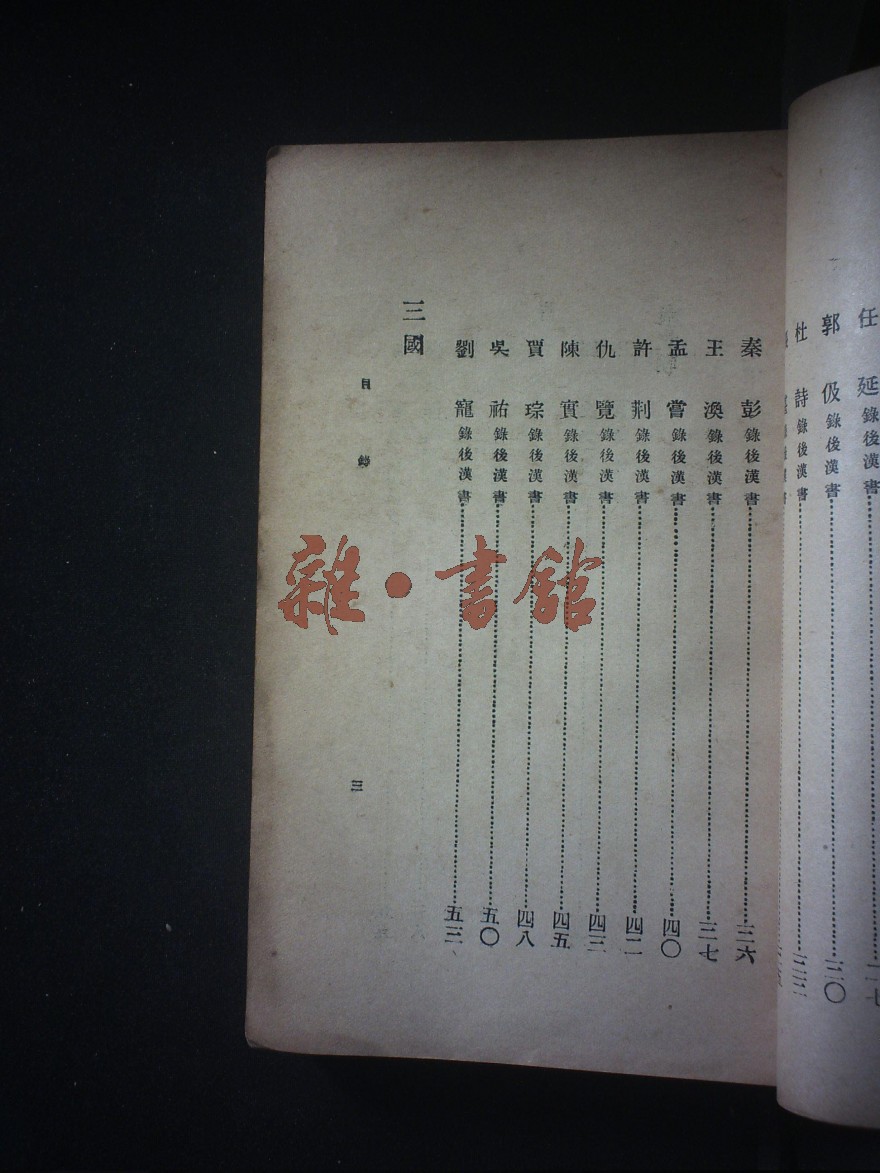 任延錄後漢書
郭伋錄後漢書三〇
杜詩錄後漢書
秦彭錄後漢書三六
王渙錄後漢書三七
孟嘗錄後漢書四〇
許荆錄後漢書四二
仇覽錄後漢書四三
陳寔錄後漢書四五
賈琮錄後漢書四八
吳祐錄後漢書五〇
劉寵錄後漢書五三
三國
目錄
三
雜·書館